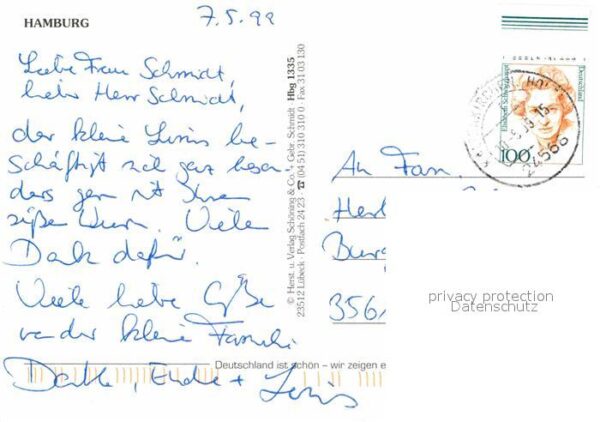 HAMBURG
7.5.99
Liebe Frau Schmidt,
lieber Herr Schmidt,
der kleine Linus be-
schäftigt sich ganz beson
ders gern mit Ihrem
süßen Wurm. Viele
Dank dafür.
Viele liebe Grüße
von der kleinen Familie
Deutschland ist schön – wir zeigen e
Linus
© Herst. u. Verlag Schöning & Co. + Gebr. Schmidt Hbg 1335
23512 Lübeck · Postfach 24 23 · ☎ (04 51) 310 310 0 · Fax 31 03 130
Deutschland
Elisabeth Schwarzhaupt
100
24568
An Fam.
Burg
356
privacy protection
Datenschutz